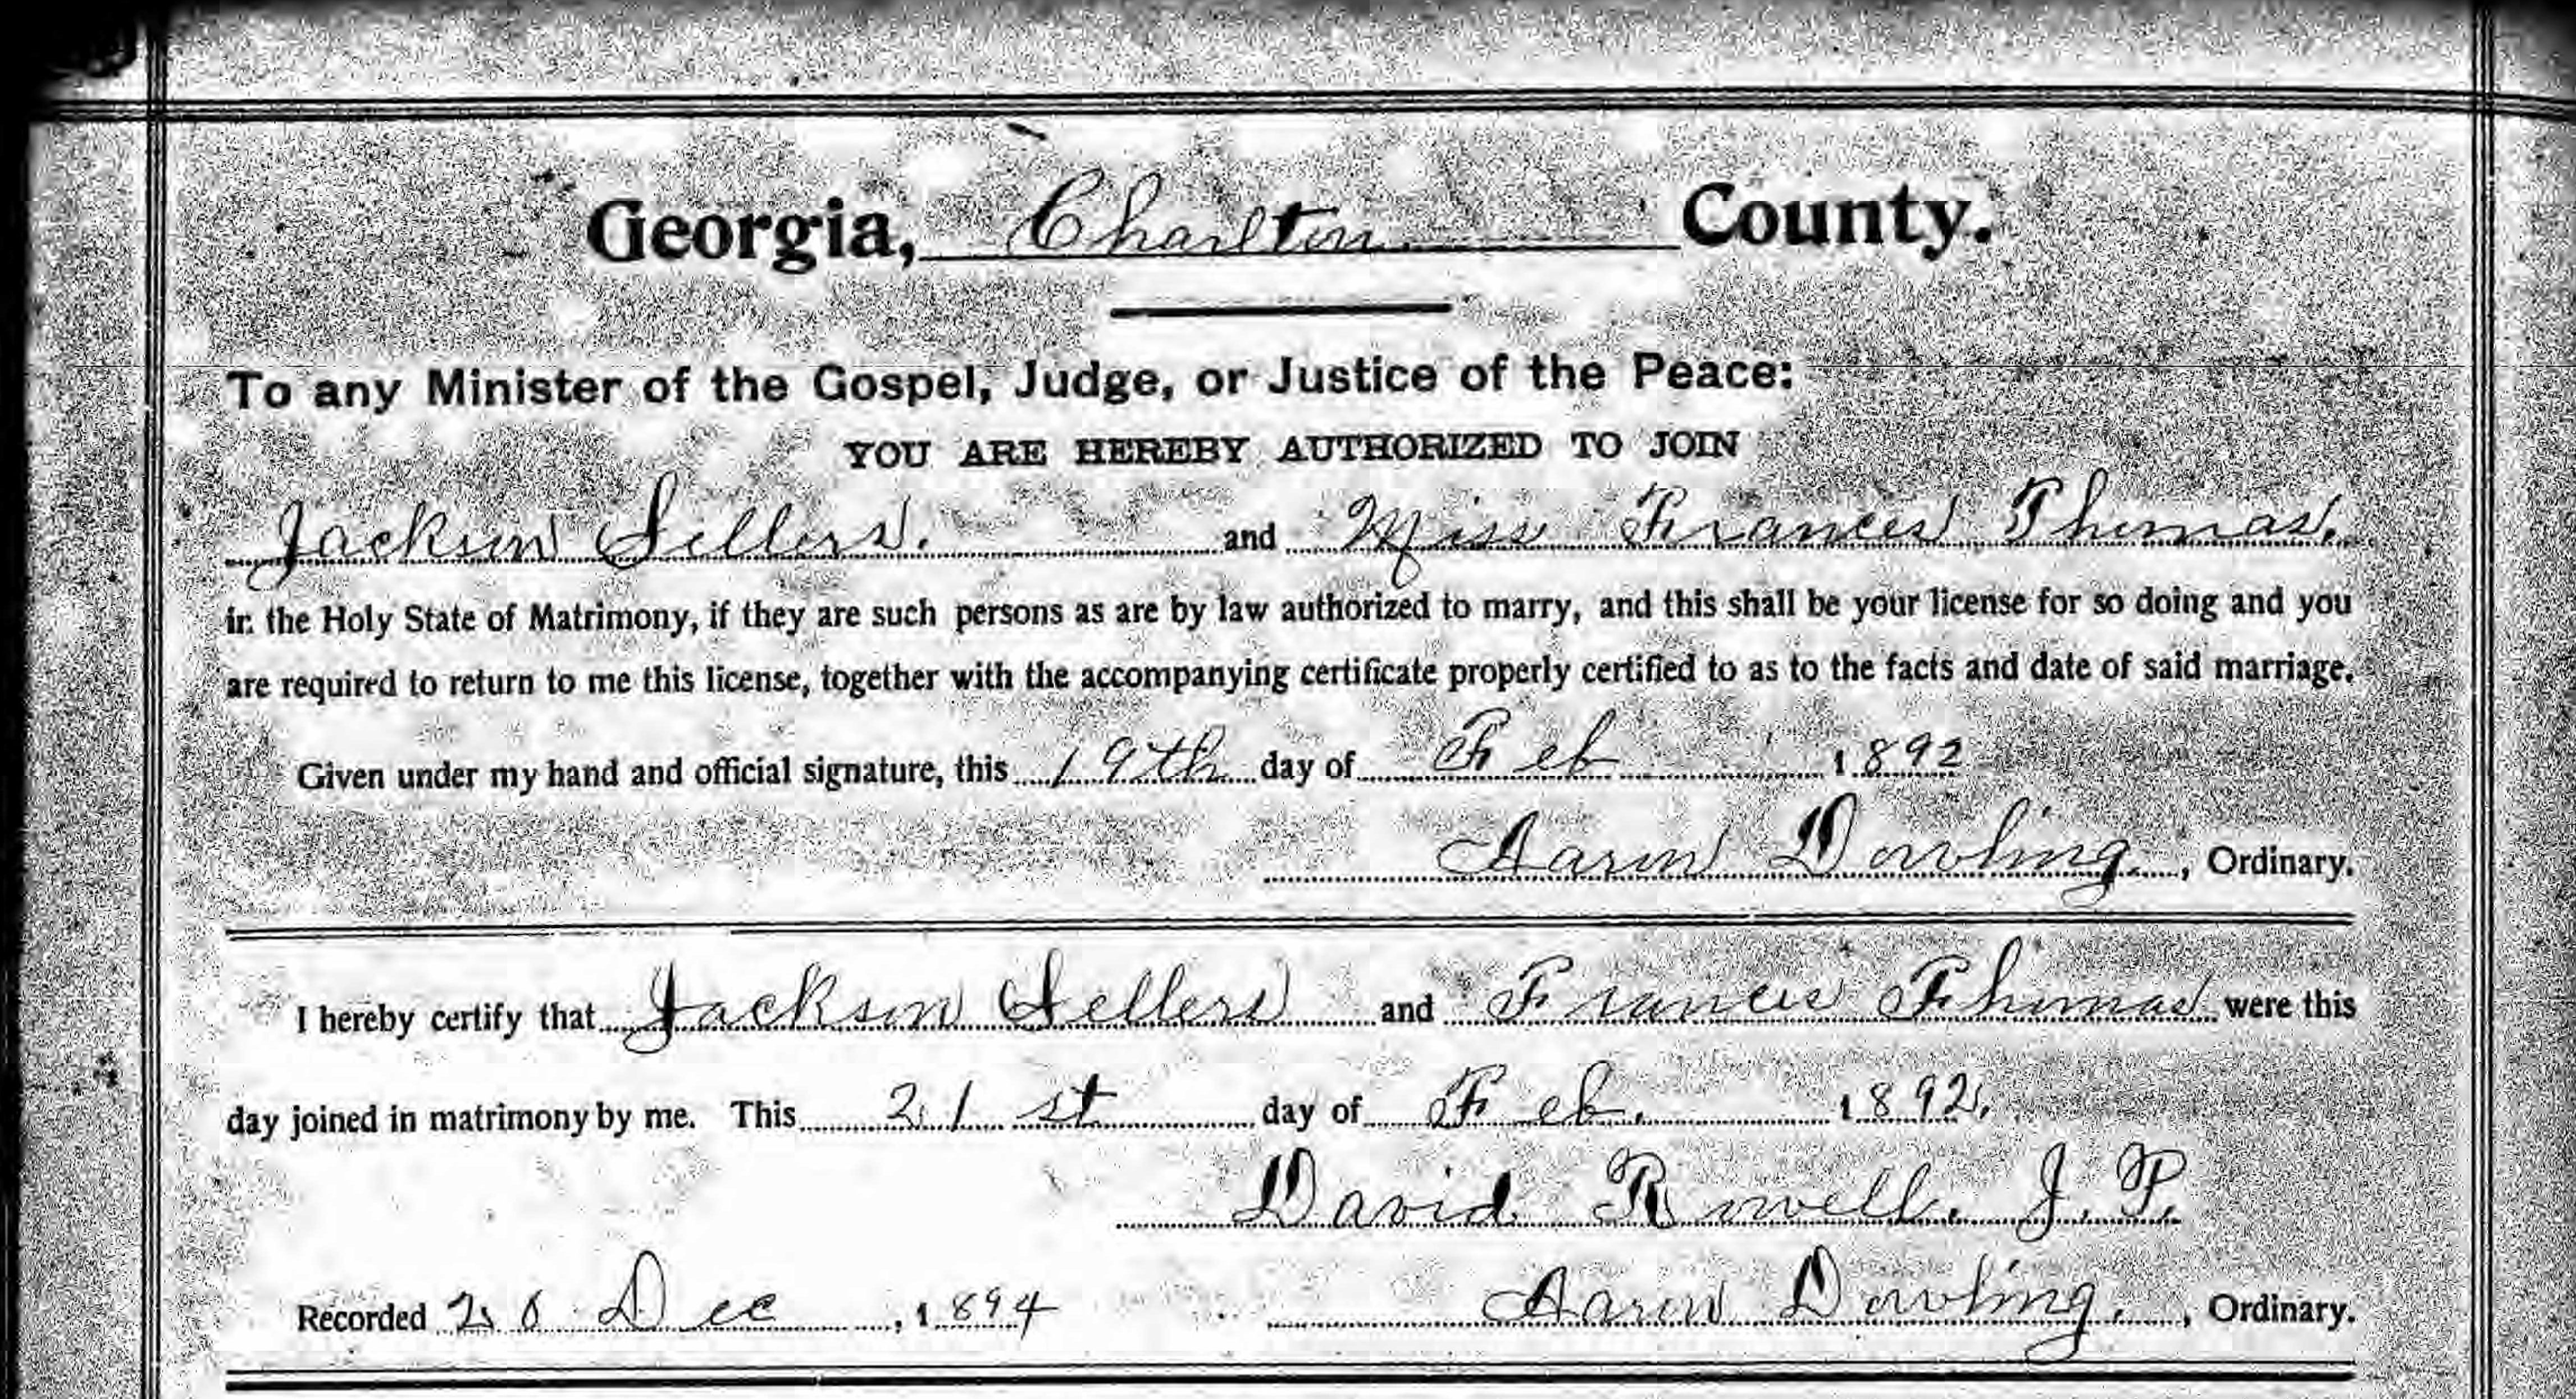 Georgia, Charlton County.
To any Minister of the Gospel, Judge, or Justice of the Peace:
YOU ARE HEREBY AUTHORIZED TO JOIN
Jackson Sellers. and Miss Frances Thomas.
in the Holy State of Matrimony, if they are such persons as are by law authorized to marry, and this shall be your license for so doing and you
are required to return to me this license, together with the accompanying certificate properly certified to as to the facts and date of said marriage.
Given under my hand and official signature, this 19th day of Feb 1892
Aaron Dowling., Ordinary.
I hereby certify that Jackson Sellers and Frances Thomas were this
day joined in matrimony by me. This 21st day of Feb. 1892.
David Rowell. J. P.
Recorded Dec, 1894 Aaron Dowling., Ordinary.